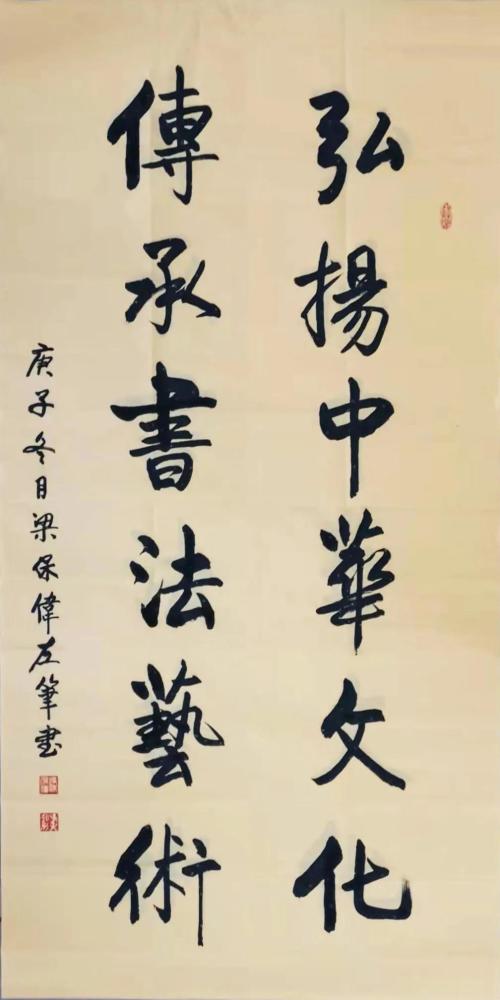 弘揚中華文化
傳承書法藝術
庚子冬月梁保偉左筆書